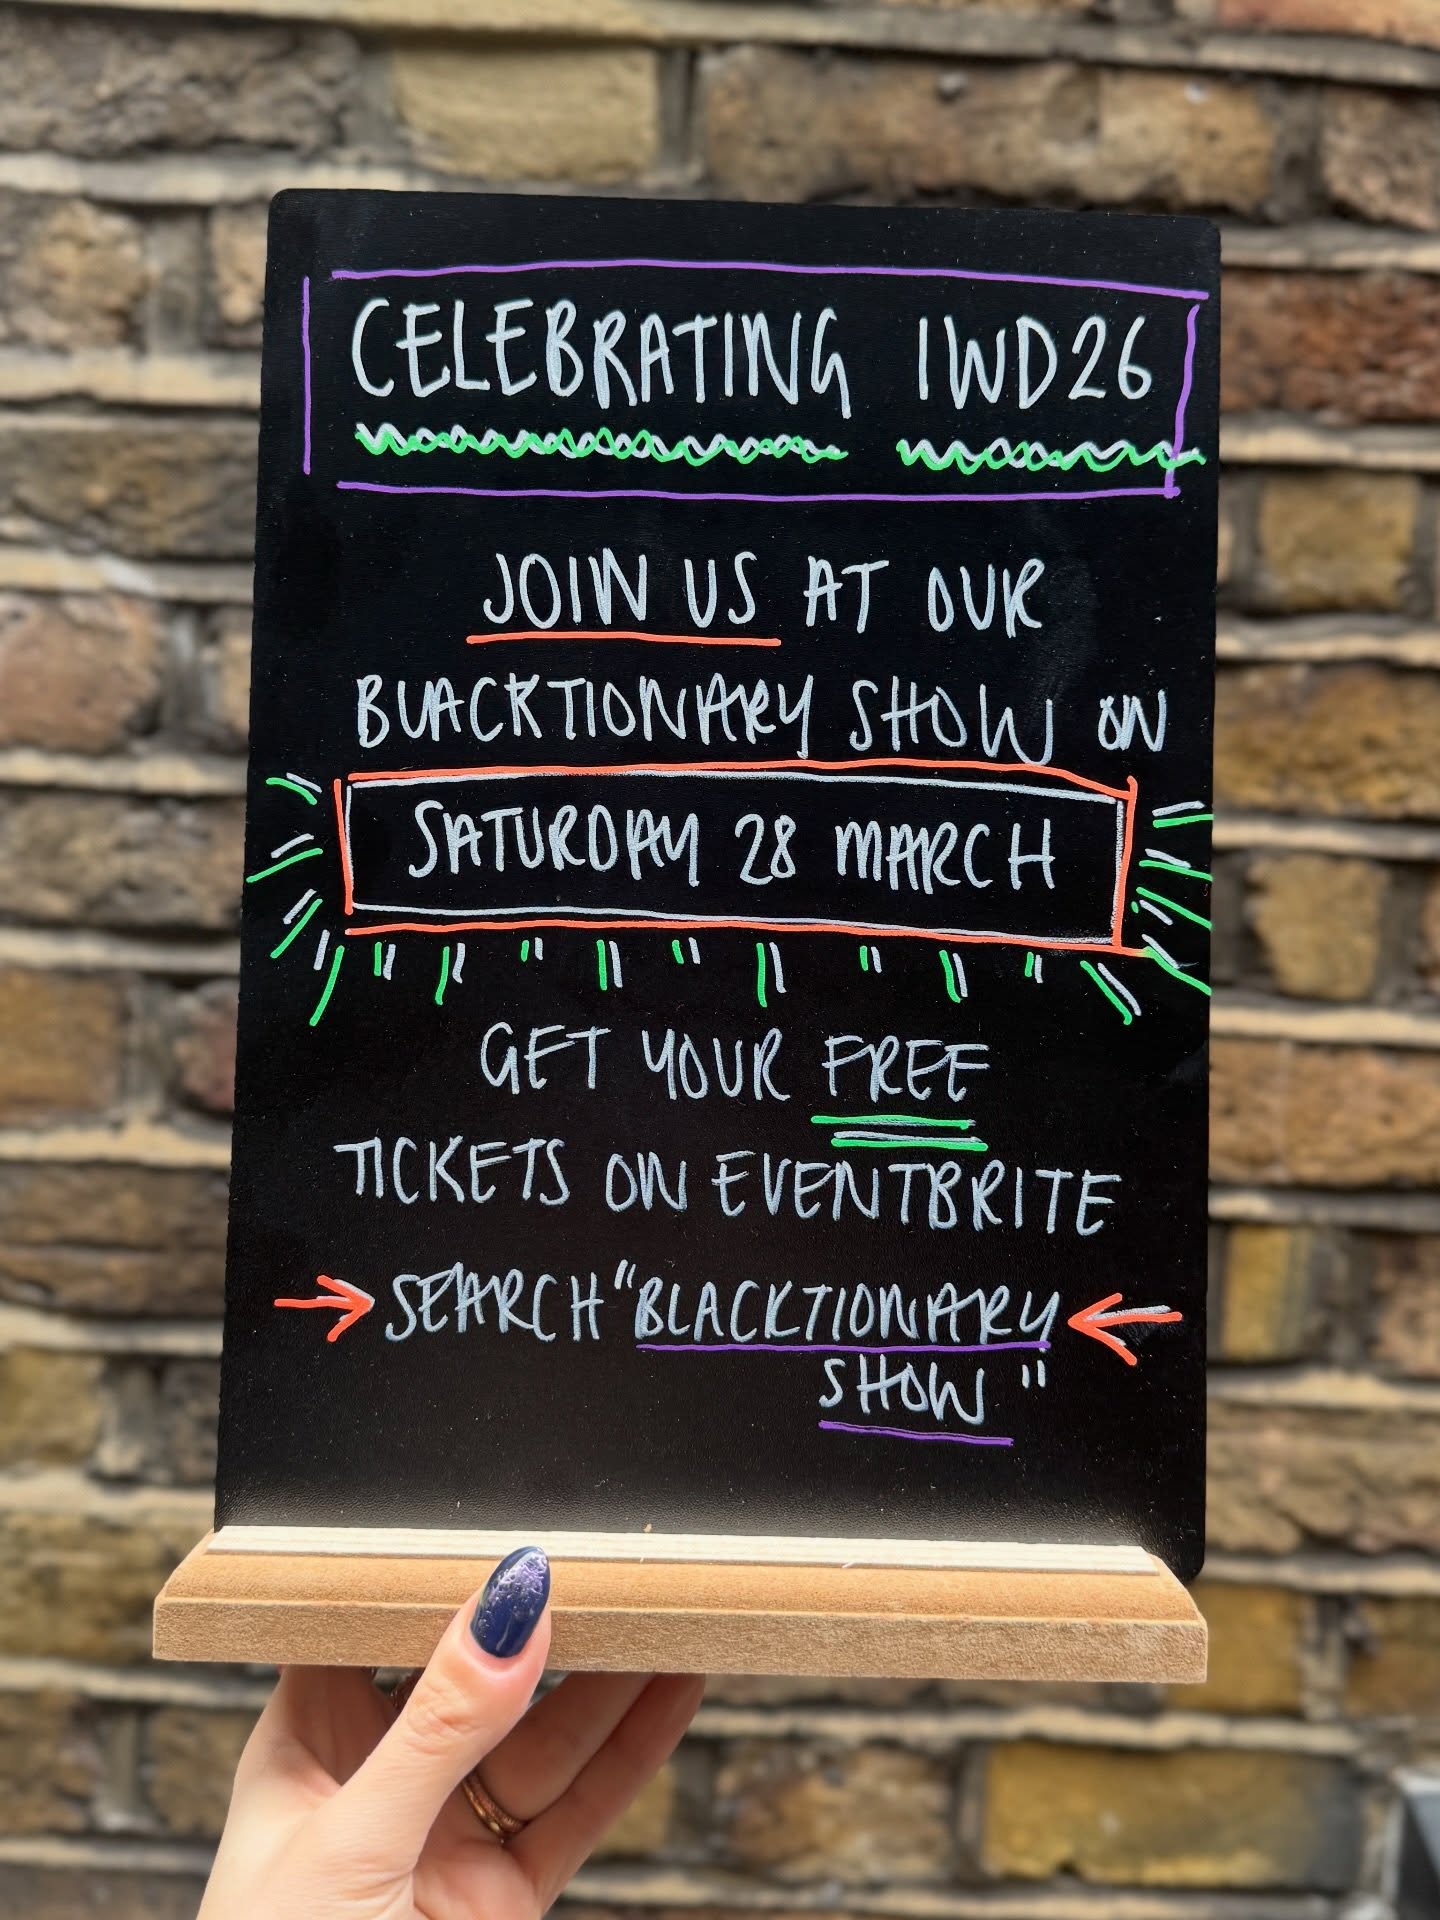 CELEBRATING IWD26
JOIN US AT OUR
BLACKTIONARY SHOW ON
SATURDAY 28 MARCH
GET YOUR FREE
TICKETS ON EVENTBRITE
SEARCH "BLACKTIONARY
SHOW"